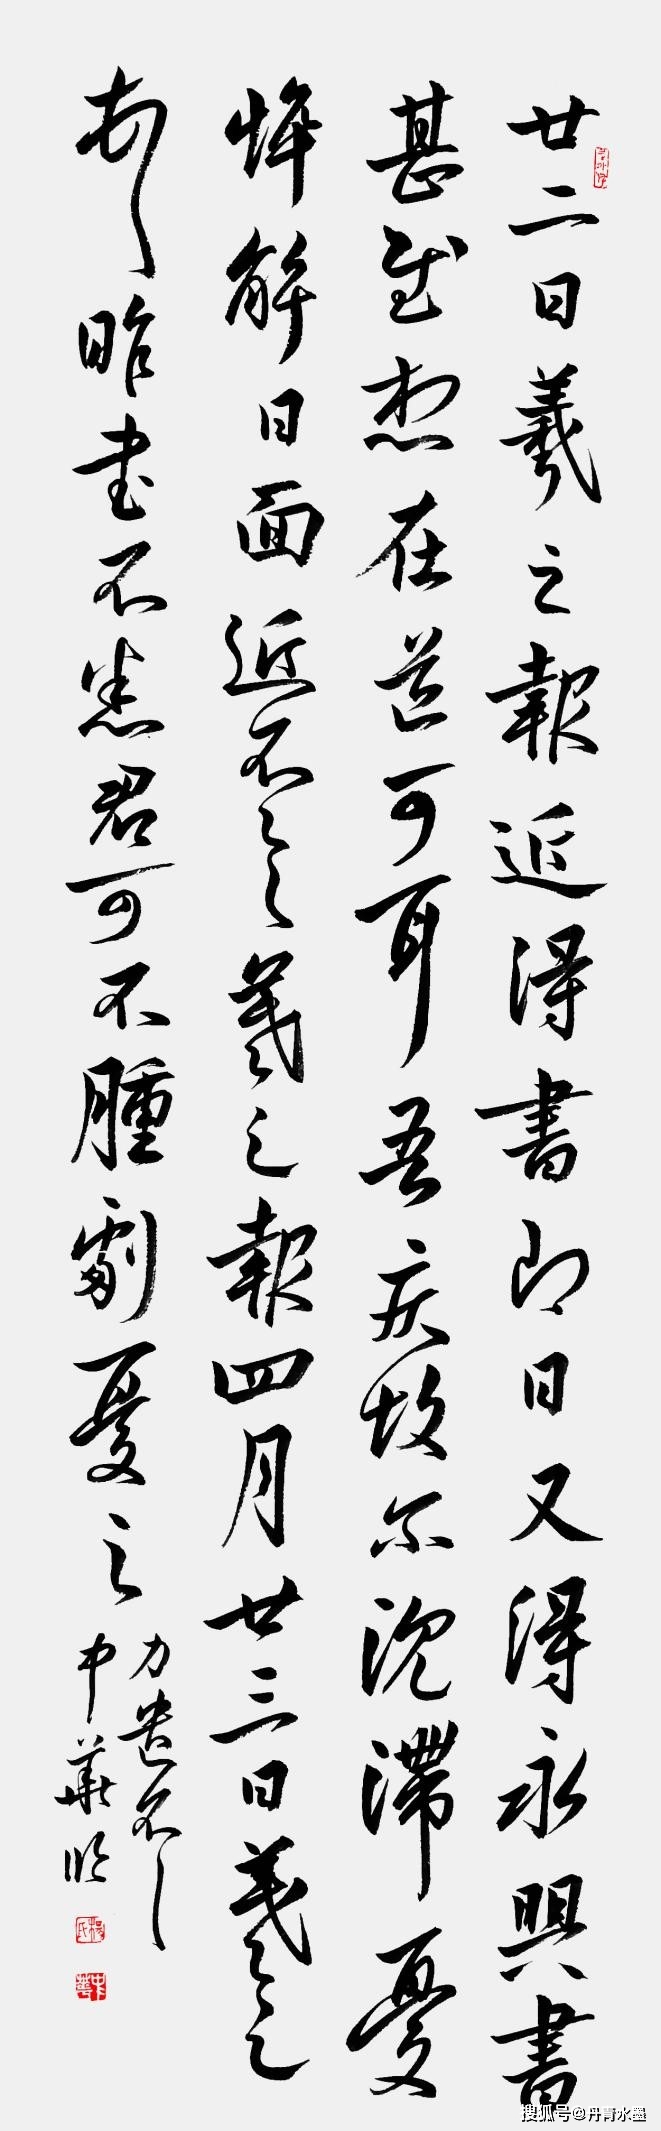 廿二日羲之報近得書即日又得永興書
甚慰想在道可耳吾疾故爾沉滯憂
悴解日面近不具羲之報四月廿三日羲之
頓昨書不悉君可不腫劇憂之
力遣不
中華臨
楊氏
中華
搜狐号@丹青水墨